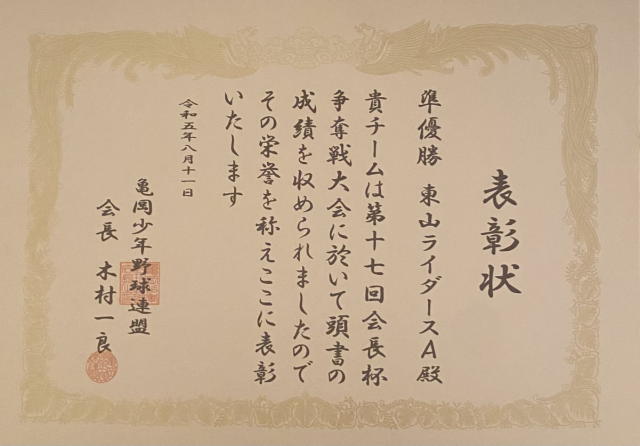 表彰状
準優勝 東山ライダースA殿
貴チームは第十七回会長杯
争奪戦大会に於いて頭書の
成績を収められましたので
その栄誉を称えここに表彰
いたします
令和五年八月十一日
亀岡少年野球連盟
会長 木村一良